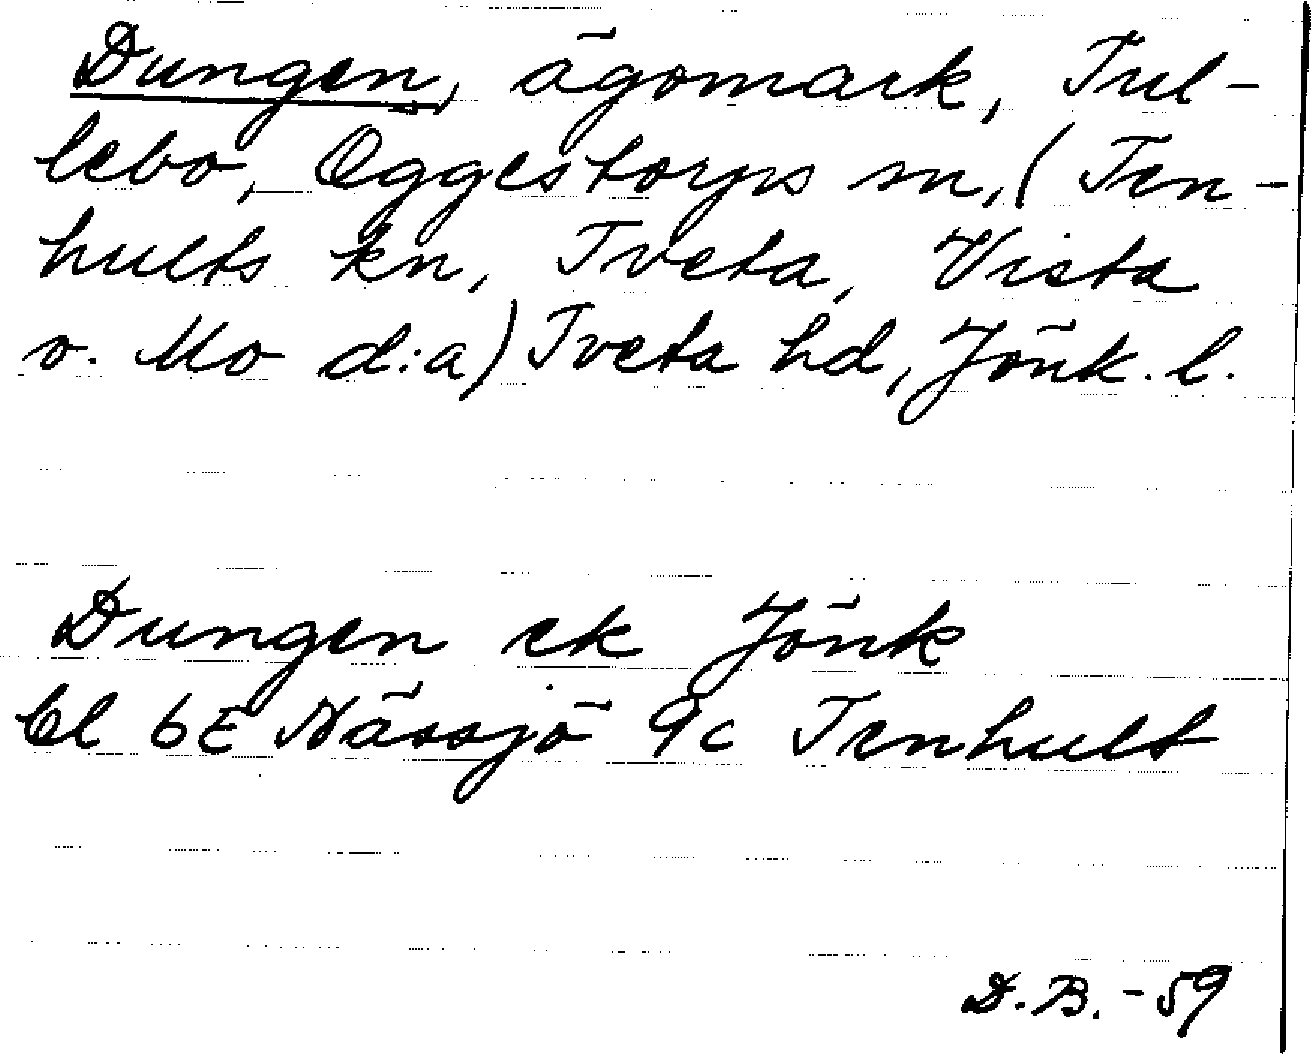 Dungen, ägomark, Trul-
lebo, Oggestorps sn, (Ten-
hults kn, Tveta, Vista
o. Mo d:a) Tveta hd, Jönk. l.
Dungen ek Jönk
bl 6E Nässjö 9c Tenhult
D.B. -59